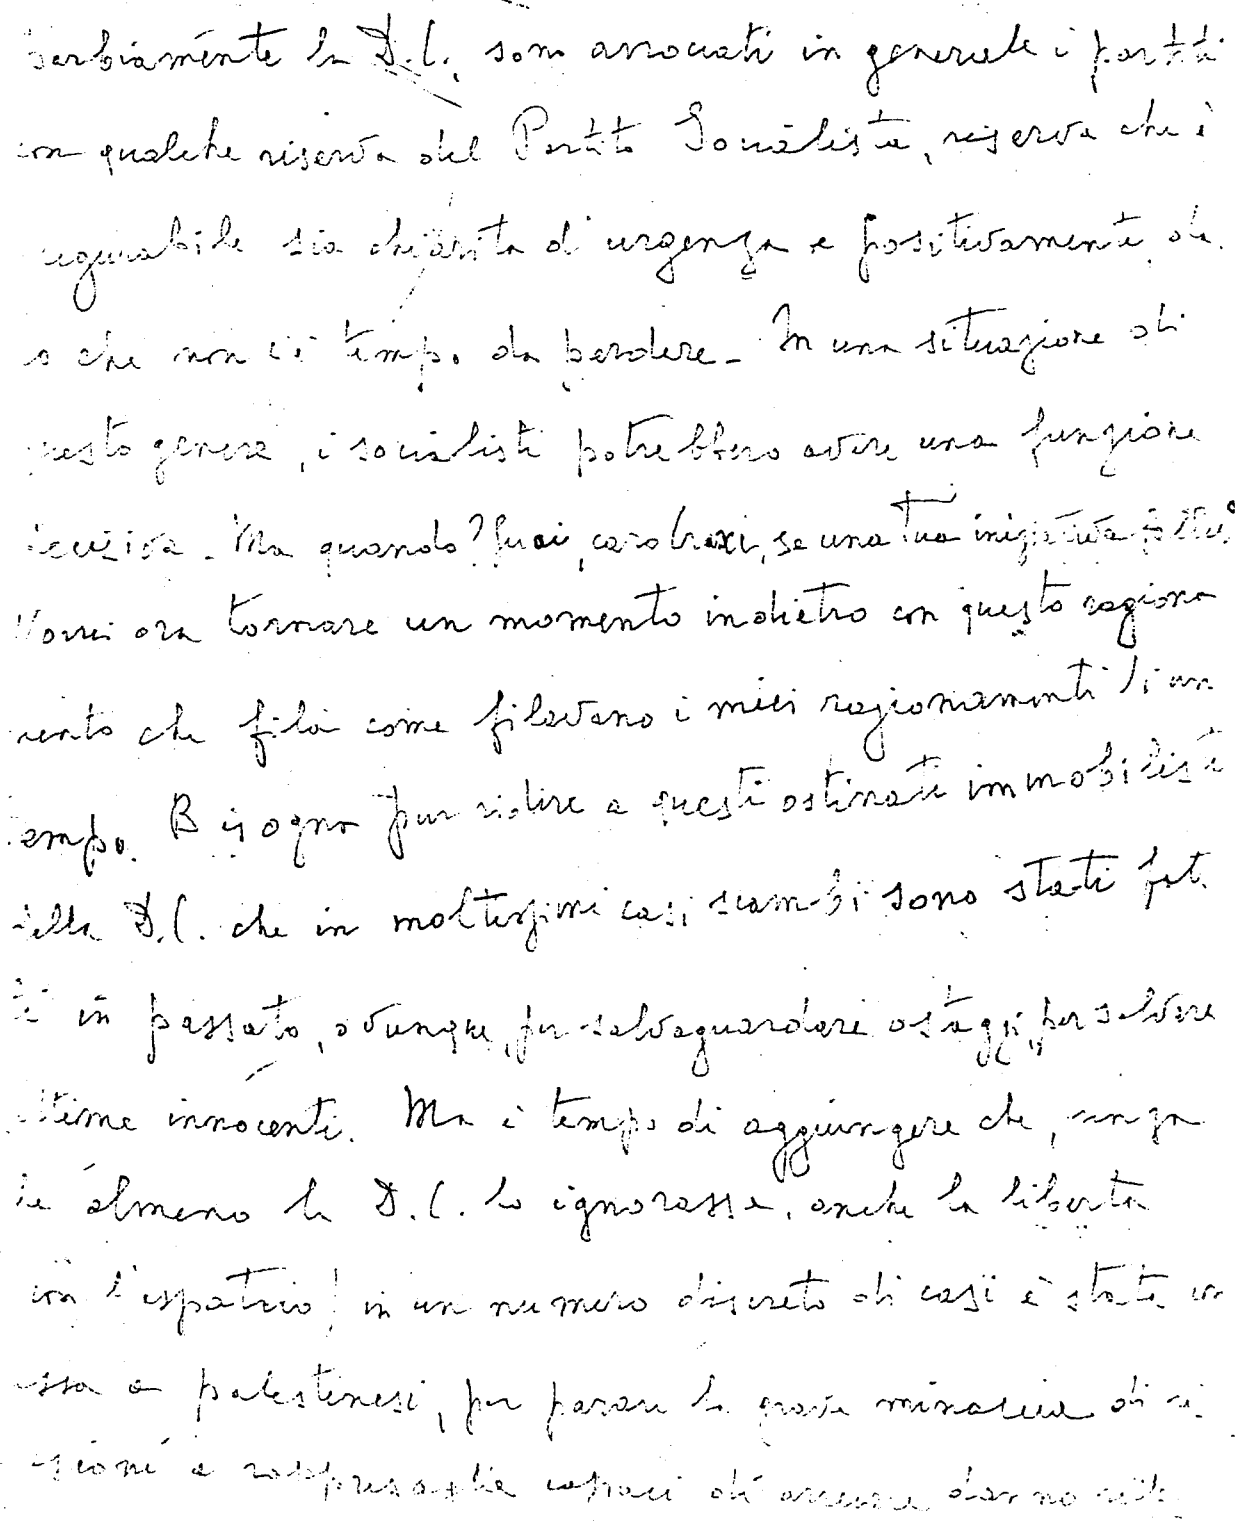 serbiamente la D.C., sono associati in generale i partiti
con qualche riserva del Partito Socialista, riserva che è
augurabile sia chiarita d'urgenza e positivamente, da
o che non c'è tempo da perdere - In una situazione di
questo genere, i socialisti potrebbero avere una funzione
decisiva - Ma quando? Guai, caro Craxi, se una tua iniziativa fallisse
Vorrei ora tornare un momento indietro con questo ragiona
mento che fila come filavano i miei ragionamenti di un
tempo. Bisogna pur ridire a questi ostinati immobilisti
della D.C. che in moltissimi casi scambi sono stati fat
ti in passato, ovunque, per salvaguardare ostaggi, per salvare
vittime innocenti. Ma è tempo di aggiungere che, senza
che almeno la D.C. lo ignorasse, anche la libertà
con l'espatrio in un numero discreto di casi è stata con
essa a palestinesi, per parare la grave minaccia di ri
sioni e rappresaglie capaci di arrecare danno